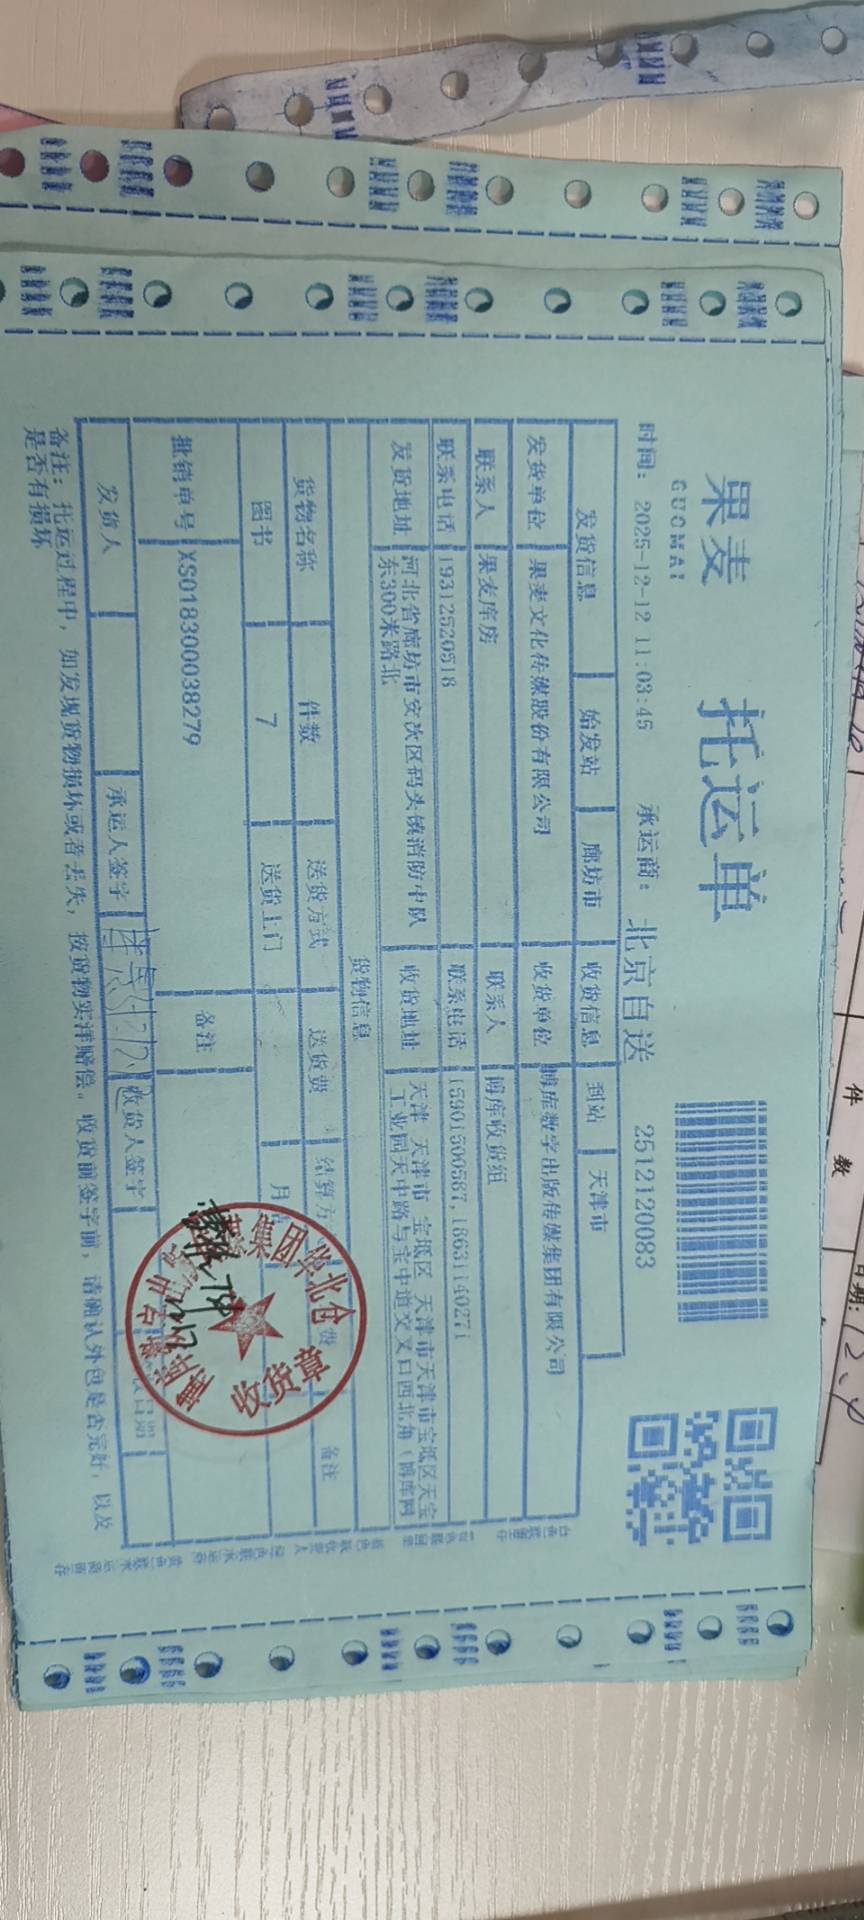 果麦
GUOMAI
托运单
时间: 2025-12-12 11:03:45 承运商: 北京自送 2512120083
发货信息 始发站 廊坊市 收货信息 到站 天津市
发货单位 果麦文化传媒股份有限公司 收货单位 博库数字出版传媒集团有限公司
联系人 果麦库房 联系人 博库收货组
联系电话 19312520518 联系电话 15901500587,18631140271
发货地址 河北省廊坊市安次区码头镇消防中队东300米路北 收货地址 天津 天津市 宝坻区 天津市天津市宝坻区天宝工业园天中路与宝中道交叉口西北角(博库网
货物信息
货物名称 件数 送货方式 送货费 结算方 费 备注
图书 7 送货上门 月
批销单号 XS018300038279 备注
发货人 承运人签字 收货人签字
备注: 托运过程中, 如发现货物损坏或者丢失, 按货物实洋赔偿。收货前签字前, 请确认外包是否完好, 以及
是否有损坏
集团华北仓
收货章
件 数
日期:12.